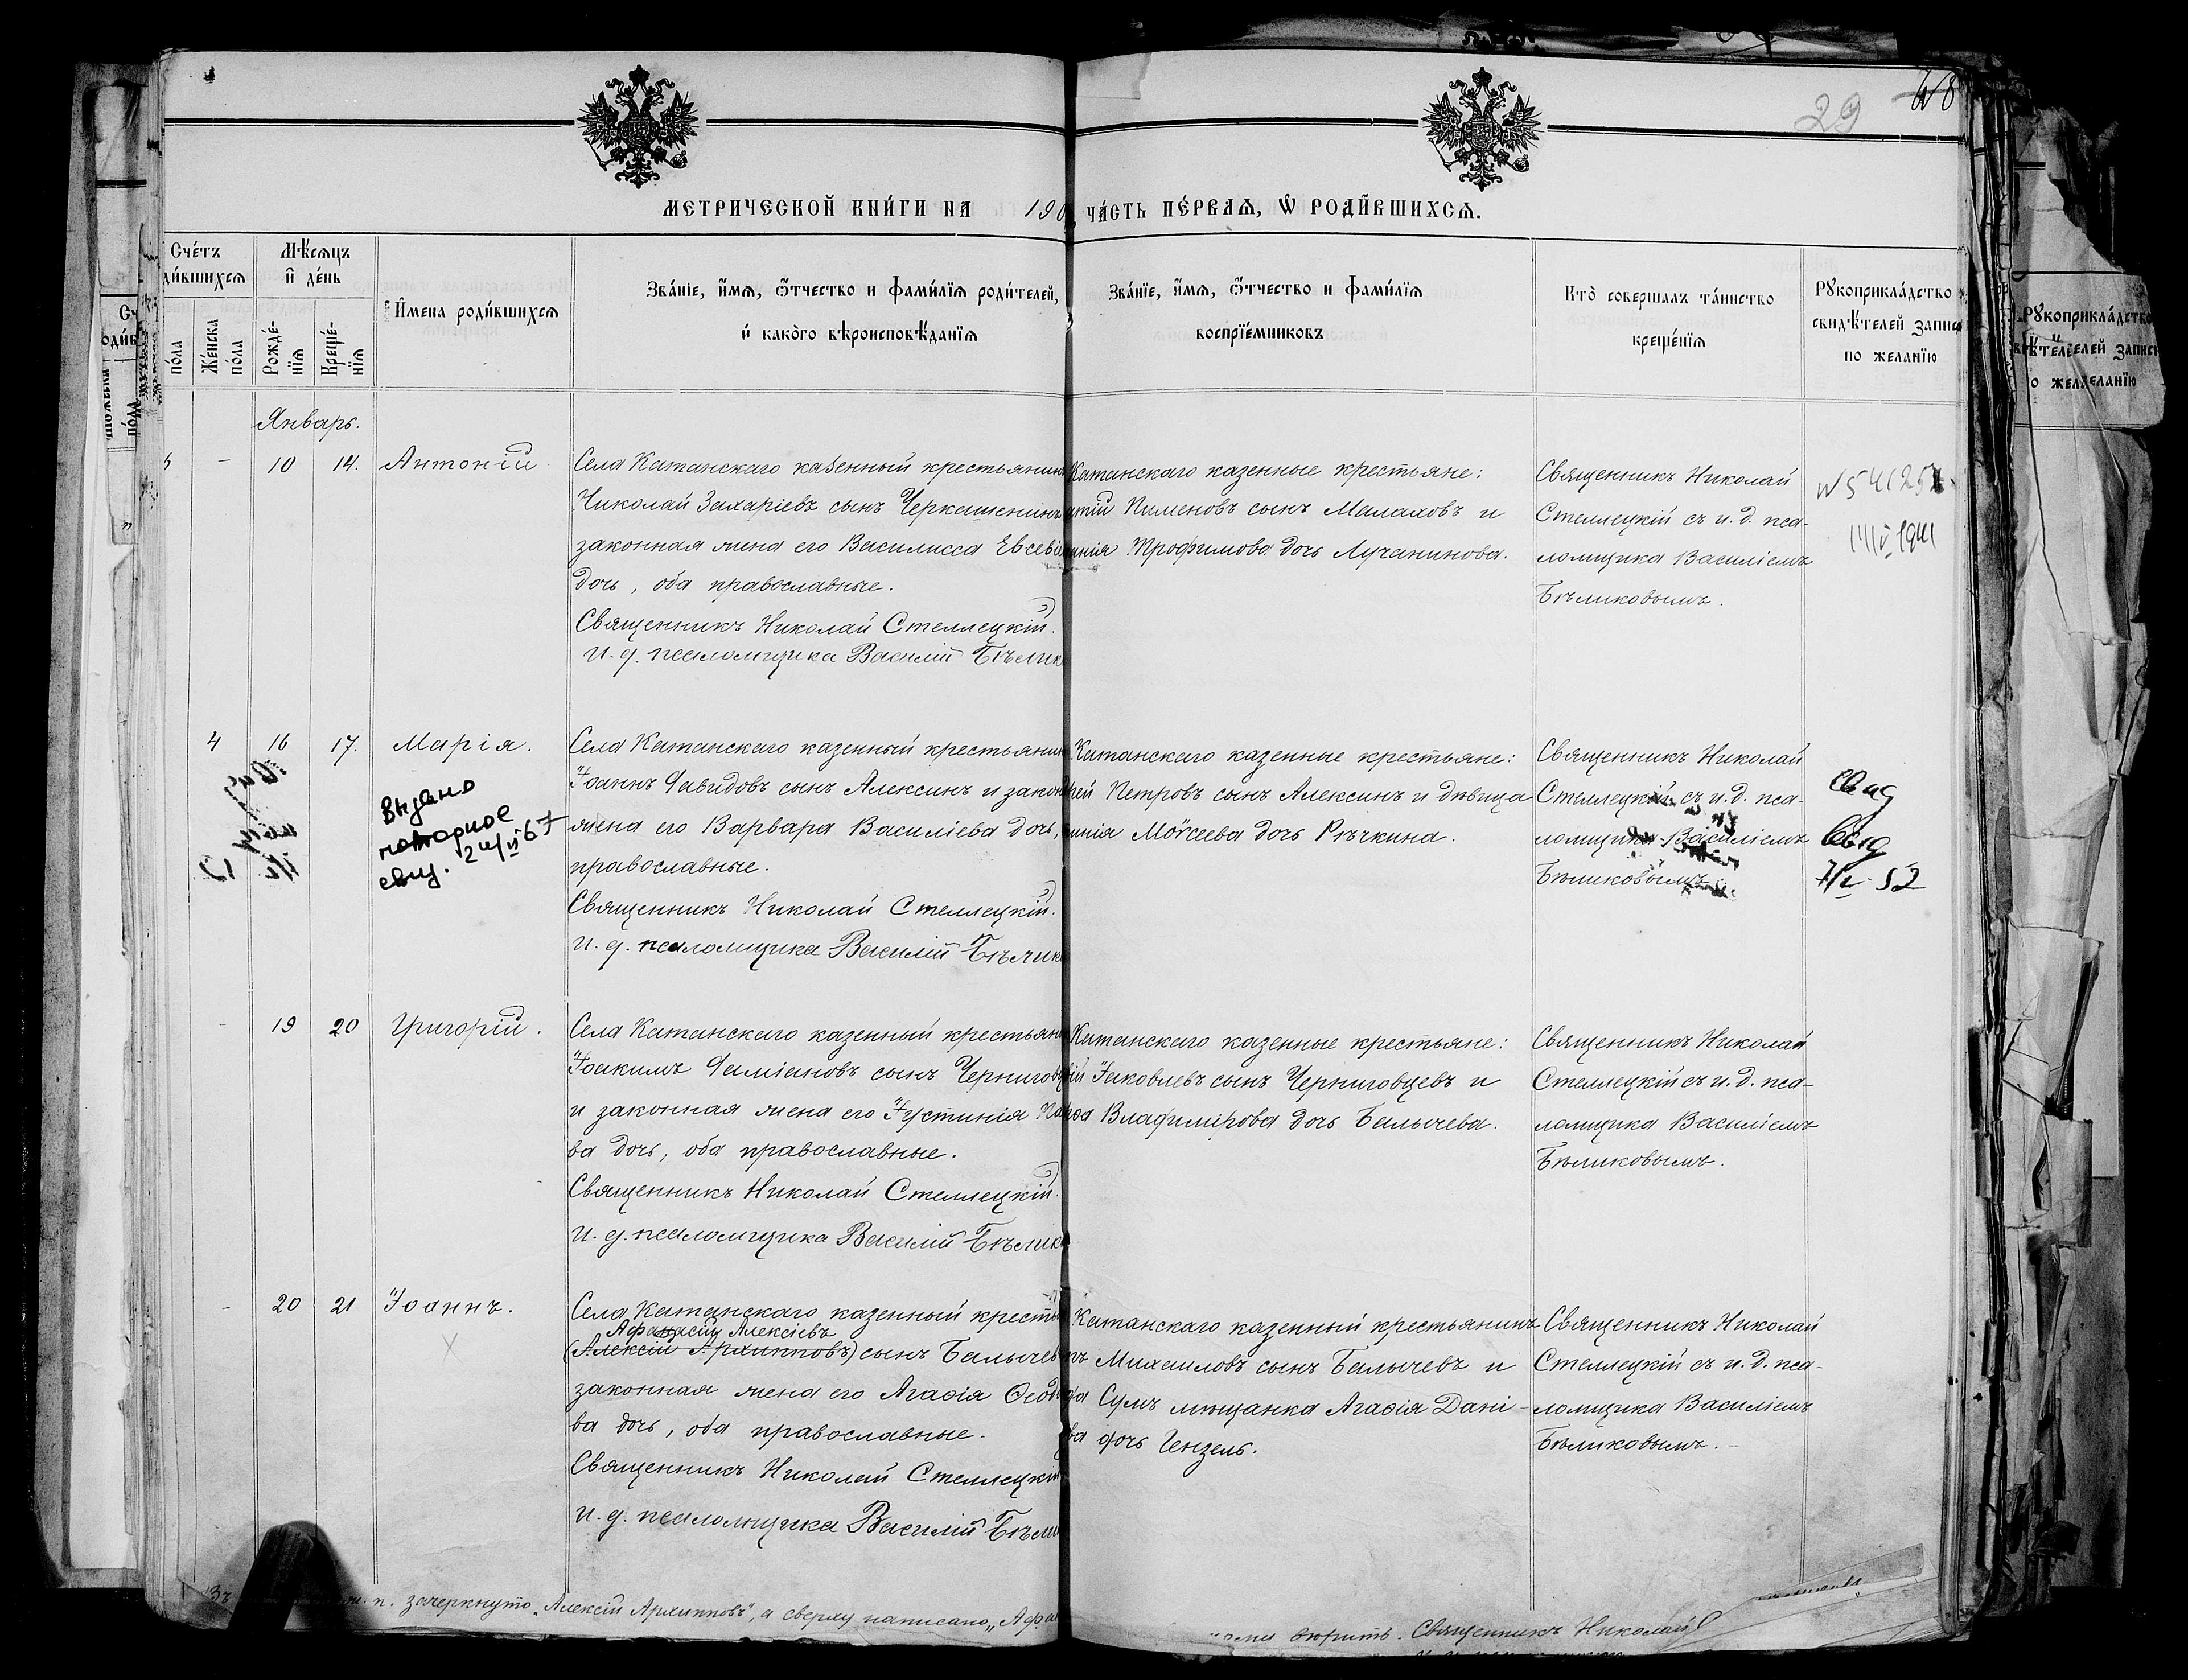 29
МЕТРИЧЕСКОЙ КНИ́ГИ НА 190
ЧА́СТЬ ПЕ́РВАѦ, Ѡ҆ РОДИ́ВШИХСѦ.
Сче́тъ
ди́вшихсѧ
Мѣ́сѧцъ
и҆ де́нь
по́ла
Же́нска по́ла
Рожде́нїѧ
Креще́нїѧ
И҆мена роди́вшихсѧ
Зва́нїе, и҆́мѧ, ѻ҆́тчество и фами́лїѧ роди́телей,
и҆ како́го вѣроисповѣ́данїѧ
Зва́нїе, и҆́мѧ, ѻ҆́тчество и фами́лїѧ
воспрїе́мниковъ
Кто̀ совершалъ та́инство
креще́нїѧ
Рꙋкоприкла́дство
свидѣ́телей записи
по желанїю
Январь.
10 14. Антоній
Села Катанскаго казенный крестьянинъ
Николай Захаріевъ сынъ Черкашенинъ
законная жена его Василисса Евсевіе
дочь, оба православные.
Священникъ Николай Стеллецкій.
И. д. псаломщика Василій Бѣлик
Катанскаго казенные крестьяне:
Пименовъ сынъ Малаховъ и
Трофимова дочь Лучанинова.
Священникъ Николай
Стеллецкій съ и. д. пса-
ломщика Василіемъ
Бѣликовымъ.
4 16 17. Марія.
выдано
повторное
свид.
Села Катанскаго казенный крестьянин
Іоаннъ Давидовъ сынъ Алексинъ и закон
жена его Варвара Василіева дочь,
православные.
Священникъ Николай Стеллецкій.
И. д. псаломщика Василій Бѣлик
Катанскаго казенные крестьяне:
Петровъ сынъ Алексинъ и дѣвица
Моѵсеева дочь Рѣчкина.
Священникъ Николай
Стеллецкій съ и. д. пса-
ломщика Василіемъ
Бѣликовымъ.
свид
выд
52
19 20 Григорій.
Села Катанскаго казенный крестьян
Іоакимъ Даміановъ сынъ Чернигов
и законная жена его Іустинія
ва дочь, оба православные.
Священникъ Николай Стеллецкій.
И. д. псаломщика Василій Бѣлик
Катанскаго казенные крестьяне:
Іаковлевъ сынъ Черниговцевъ и
Владимірова дочь Балычева.
Священникъ Николай
Стеллецкій съ и. д. пса-
ломщика Василіемъ
Бѣликовымъ.
20 21 Іоаннъ.
Села Катанскаго казенный кресть
Афанасій Алексіевъ
(Алексій Архипповъ) сынъ Балычев
законная жена его Агаѳія Ѳеод
ва дочь, оба православные.
Священникъ Николай Стеллецкій
И. д. псаломщика Василій Бѣли
Катанскаго казенный крестьянинъ
Михаиловъ сынъ Балычевъ и
Сумъ мѣщанка Агаѳія Дані-
ва дочь Гензель.
Священникъ Николай
Стеллецкій съ и. д. пса-
ломщика Василіемъ
Бѣликовымъ.
зачеркнуто „Алексій Архипповъ", а сверху написано „Афа
вѣрить. Священникъ Николай С